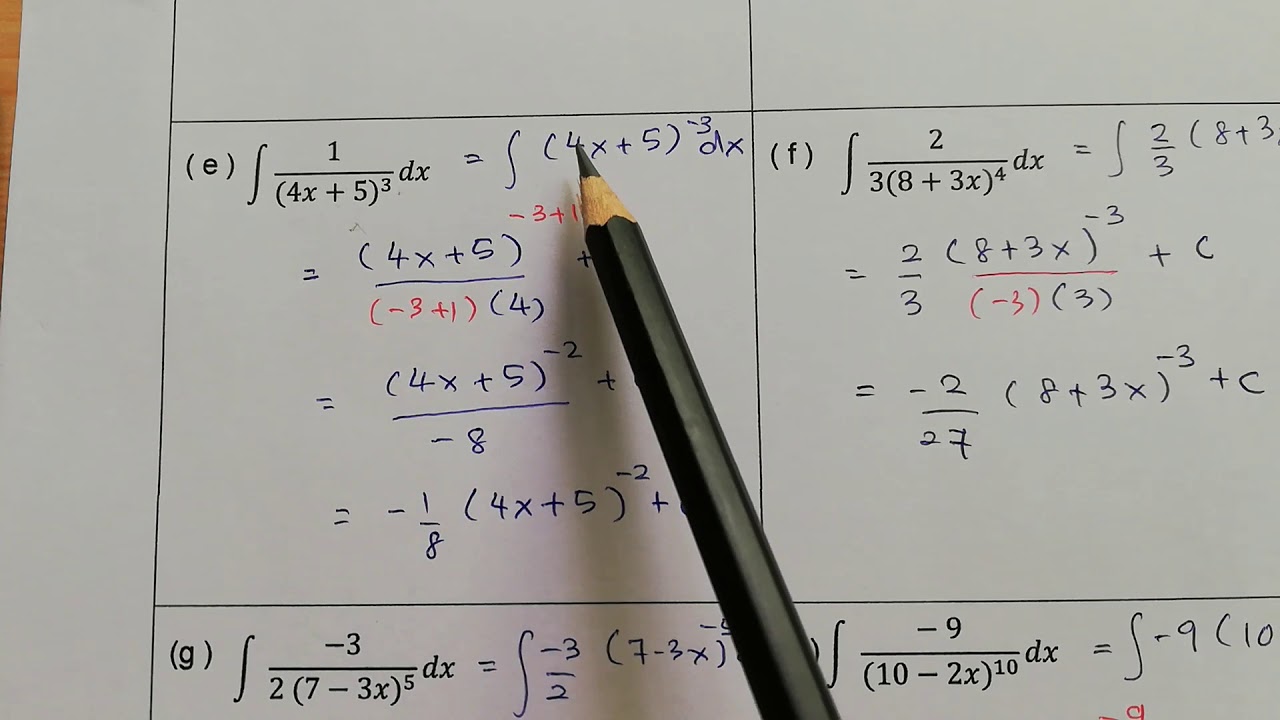 (e) ∫ 1/(4x + 5)³ dx = ∫ (4x+5)⁻³ dx
= (4x+5)⁻³⁺¹/(-3+1)(4) +
= (4x+5)⁻²/-8 +
= -1/8 (4x+5)⁻² +
(f) ∫ 2/3(8 + 3x)⁴ dx = ∫ 2/3 (8+3
= 2/3 (8+3x)⁻³/(-3)(3) + C
= -2/27 (8+3x)⁻³ + C
(g) ∫ -3/2 (7 − 3x)⁵ dx = ∫ -3/2 (7-3x)
) ∫ −9/(10 − 2x)¹⁰ dx = ∫ -9 (10
-9